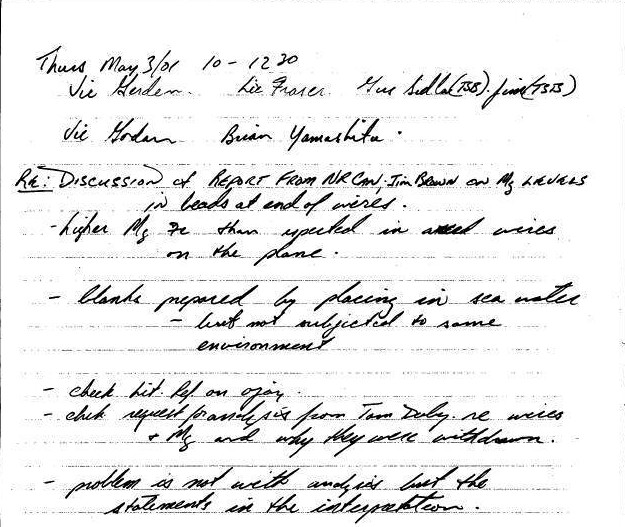 Thurs May 3/01 10 - 12 30
Vic Gorden. Lee Fraser Gus Sidla (TSB). Jim (TSB)
Vic Gordan Brian Yamashita.
RE: DISCUSSION of REPORT FROM NRCAN, Jim BROWN on Mg LEVELS
in beads at end of wires.
- higher Mg Fe than expected in wires
on the plane.
- blanks prepared by placing in sea water
- but not subjected to same
environment
- check Lit. Ref. on
- chck request for analysis from Tom Duby. re wires
+ Mg and why they were withdrawn.
- problem is not with analysis but the
statements in the interpretation.